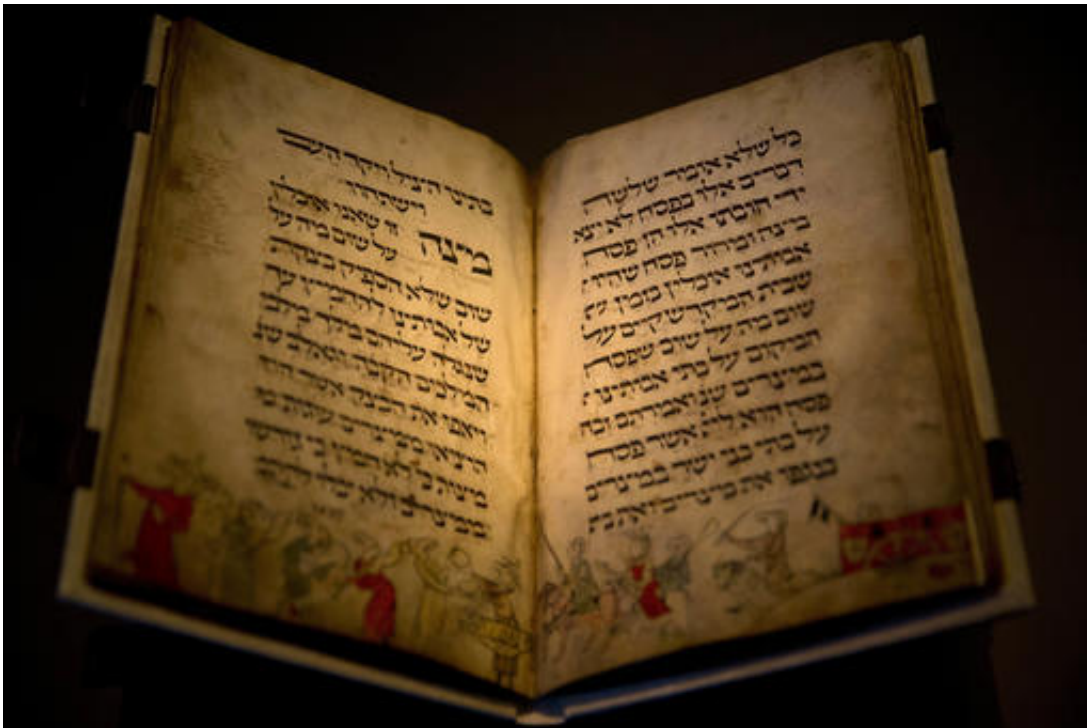 כל שלא אומר שלשה
דברים אלו בפסח לא יצא
ידי חובתו אלו הן פסח
מצה ומרור פסח שהיו
אבותינו אוכלין בזמן
שבית המקדש קיים על
שום מה על שום שפסח
המקום על בתי אבותינו
במצרים שנ ואמרתם זבח
פסח הוא לייי אשר פסח
על בתי בני ישר במצרים
בנגפו את מצרים ואת בת
בתינו הציל ויקד העם
וישתחוו
מצה זו שאנו אוכלין
על שום מה על
שום שלא הספיק בצקה
של אבותינו להחמיץ עד
שנגלה עליהם מלך מלכי
המלכים הקבה וגאלם שנ
ויאפו את הבצק אשר הוצ
הוציאו ממצרים עוגות מ
מצות כי לא חמץ כי גורשו
ממצרים ולא יכלו